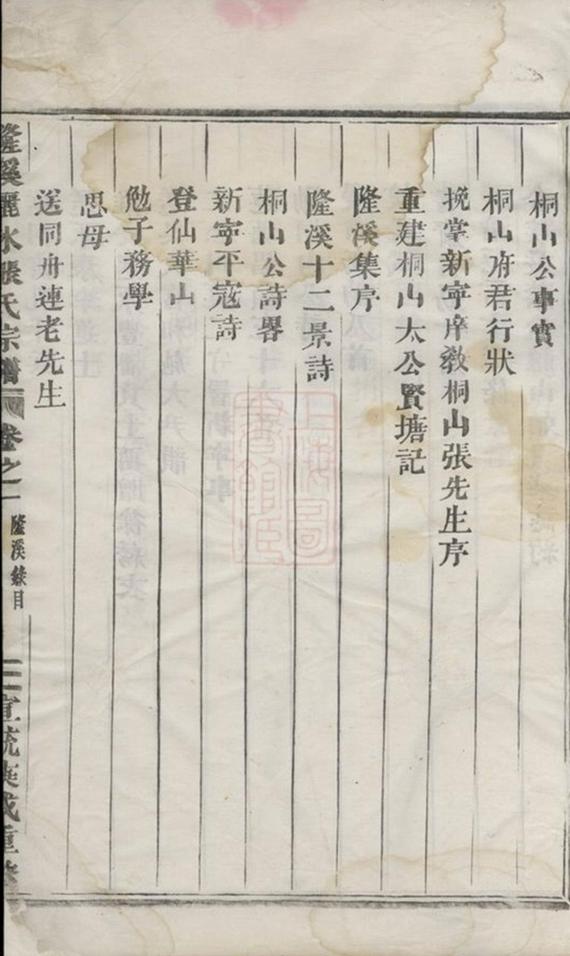 桐山公事實
桐山府君行狀
挽掌新寜庠敎桐山張先生序
重建桐山太公賢塘記
隆溪集序
隆溪十二景詩
桐山公詩畧
新寜平寇詩
登仙華山
勉子務學
思母
送同舟連老先生
隆溪麗水張氏宗譜
卷之一
隆溪錄目
二
宣統庚戌重修